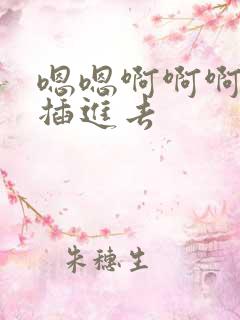 嗯嗯啊啊啊
插進去
朱穗生